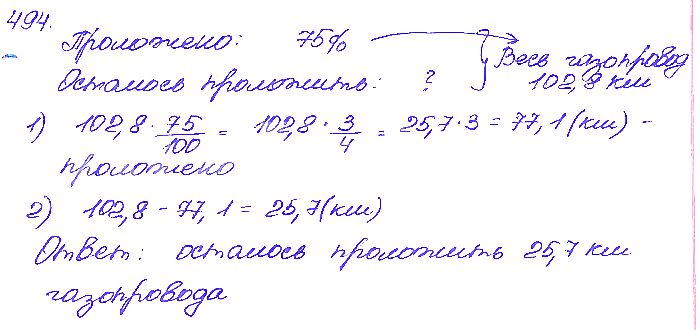 494.
Проложено: 75%
Весь газопровод
Осталось проложить: ?
102,8 км
1) 102,8 · 75/100 = 102,8 · 3/4 = 25,7 · 3 = 77,1 (км) -
проложено
2) 102,8 - 77,1 = 25,7 (км)
Ответ: осталось проложить 25,7 км
газопровода